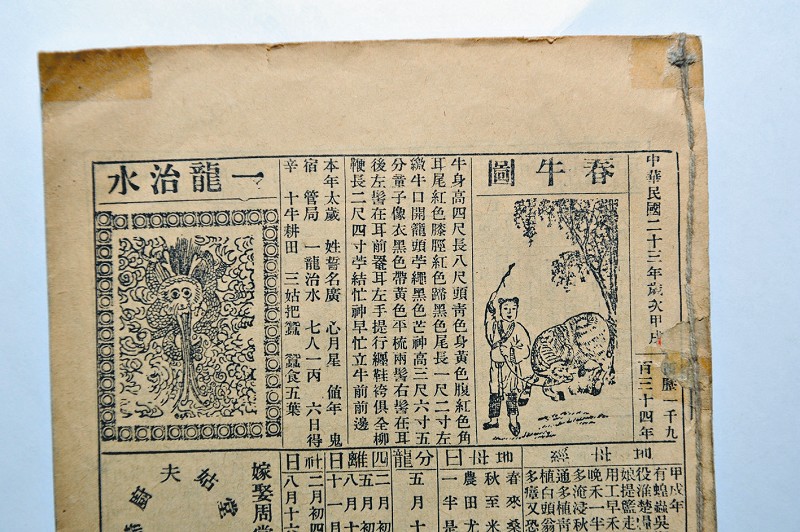 中華民國二十三年歲次甲戌
曆一千九
百三十四年
春牛圖
牛身高四尺長八尺頭青色身黃色腹紅色角
耳尾紅色膝脛紅色蹄黑色尾長一尺二寸左
繳牛口開籠頭芧繩黑色芒神高三尺六寸五
分童子像衣黑色帶黃色平梳兩髻右髻在耳
後左髻在耳前罨耳左手提行纏鞋袴俱全柳
鞭長二尺四寸苧結忙神早忙立牛前前邊
本年太歲 姓誓名廣 心月星 值年 鬼
宿 管局 一龍治水 七人一丙 六日得
辛 十牛耕田 三姑把蠶 蠶食五葉
一龍治水
地母經
甲戌年
有蝗蟲吳
役淮楚
娘提籃走
用工早禾
晚禾一半
多淹浸秋
通多植青
植白頭翁
多瘴又恐
地母日
春來桑
秋至米
農田尤
一半是
分龍
五月十
四離日
二月初
五月初
八月十
十一月
社日
二月初四
八月十六
嫁娶周堂
夫姑堂
廚